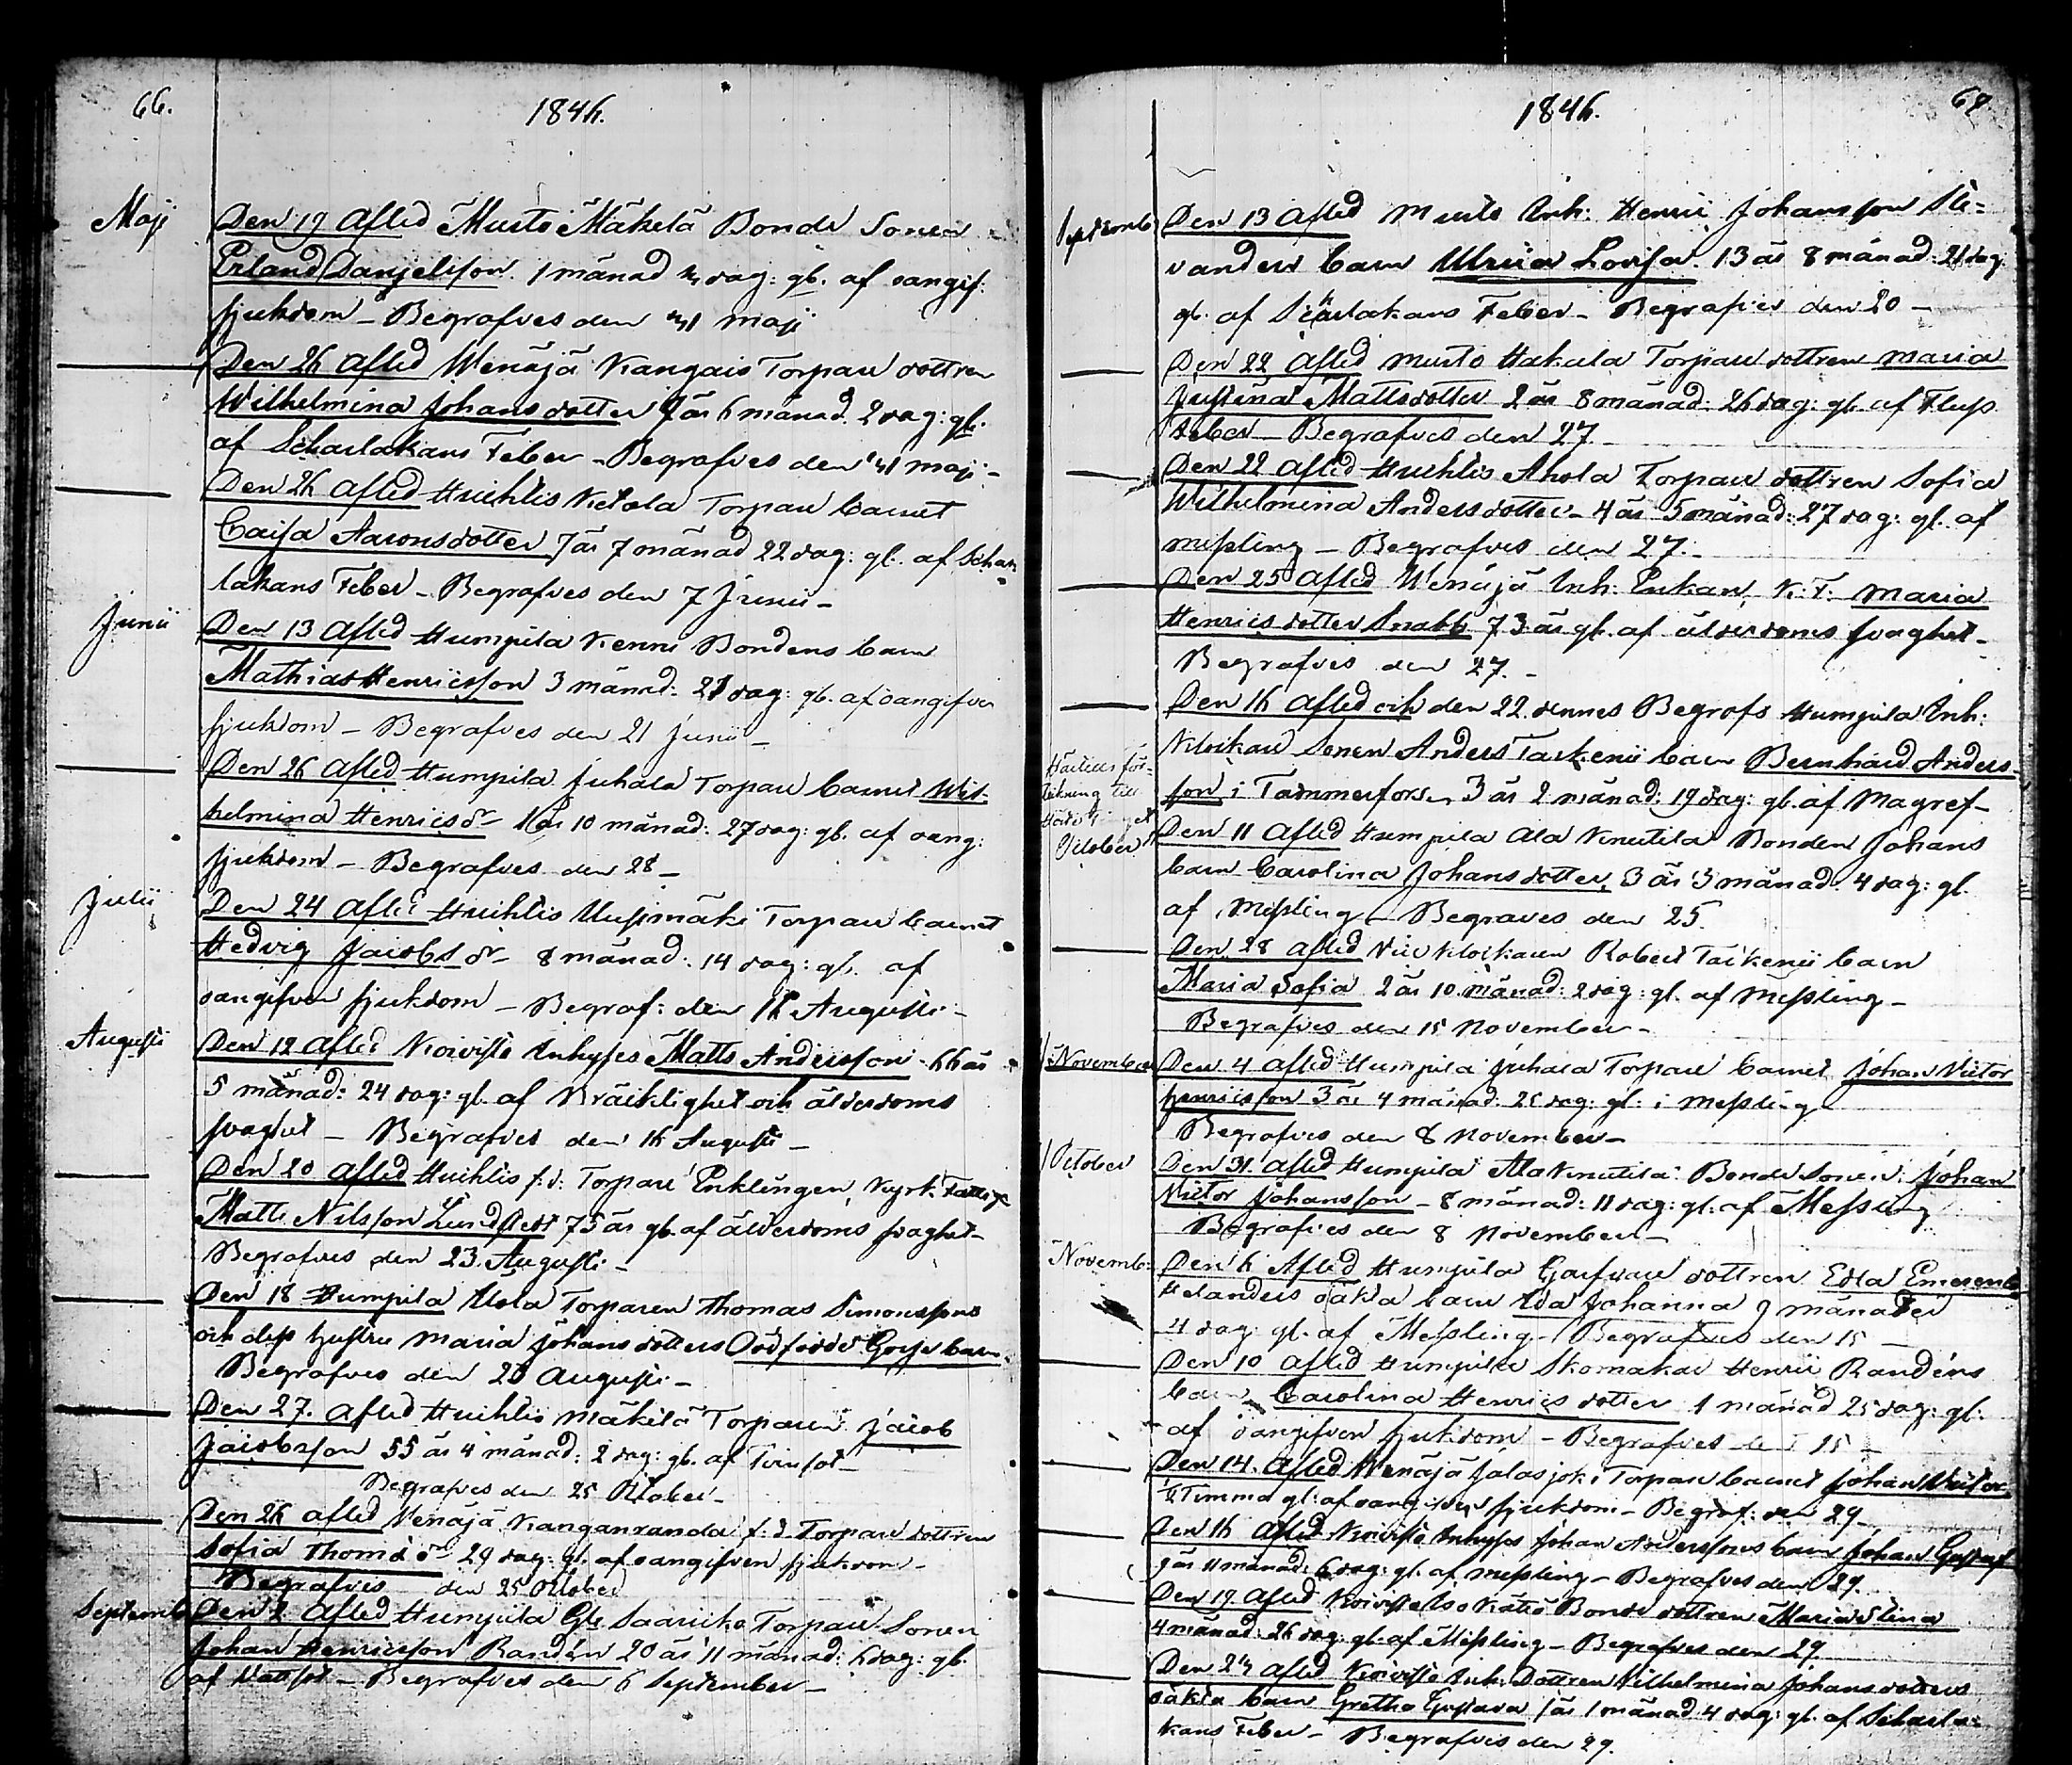 66.
1846.
Maji
Den 19 Afled Musto Mäkelä Bonde Sonen
Erland Danjelsson. 1 månad dag: gl. af oangif:
sjukdom – Begrofves den 31 maji
Den 26 Afled Wenäjä Kangais Torpare dottren
Wilhelmina Johansdotter år 6 månad. 2 dag: gl.
af Scharlakans Feber – Begrafves den 31 maji –
Den 26 Afled Huihtis Torpare barnet
Caisa Aaronsdotter 7 år 7 månad 22 dag: gl. af Schar
lakans Feber – Begrafves den 7 Junii –
Junii
Den 13 Afled Humpila Kenni Bondens barn
Mathias Henricsson 3 månad: 21 dag: gl. af oangifven
sjukdom – Begrafves den 21 Junii –
Den 26 Afled Humpila Juhala Torpare barnet Wil-
helmina Henricsdr 1 år 10 månad: 27 dag: gl. af oang:
sjukdom – Begrafves den 28 –
Julii
Den 24 Afled Huihtis Uusimäki Torpare barnet
Hedvig Jacobsdr 8 månad: 14 dag: gl. af
oangifven sjukdom – Begraf: den 16 Augusti –
Augusti
Den 12 Afled Koivisto Inhyses Matts Andersson 66 år
5 månad: 24 dag: gl. af Bräcklighet och ålderdoms
svaghet – Begrafves den 16 Augusti –
Den 20 Afled Huihtis f:d: Torpare Enklingen, Kyrk. Fattig
Matts Nilsson 75 år gl. af ålderdoms svaghet –
Begrafves den 23. Augusti –
Den 18 Humpila Uola Torparen Thomas Simonssons
och dess hustru Maria Johansdotters Dödfödde Gosse barn
Begrafves den 23 Augusti –
Den 27. Afled Huihtis Mäkilä Torparen Jacob
Jacobsson 55 år 4 månad: 2 dag: gl. af Tvinsot –
Begrafves den 25 October –
Den 26 Afled Wenäjä Kanganranda f:d Torpare dottren
Sofia Thomædr 29 dag: gl. af oangifven sjukdom –
Begrafves den 25 October
Septemb
Den 2 Afled Humpila Saariko Torpare Sonen
Johan Henricsson Randén 20 år 11 månad: 6 dag: gl.
af Wattsot – Begrafves den 6 September –
1846.
67.
Septemb
Den 13 Afled Musto Inh: Henric Johansson Sle-
vanders barn Ulrica Lovisa. 13 år 8 månad: 21 dag:
gl. af Scharlakans Feber – Begrafves den 20 –
Den 22 Afled Musto Hakala Torpare dottren Maria
Justina Mattsdotter 2 år 8 månad: 26 dag: gl. af Fluss
feber – Begrafves den 27.
Den 22 Afled Huihtis Ahola Torpare dottren Sofia
Wilhelmina Andersdotter – 4 år 5 månad: 27 dag: gl. af
messling – Begrafves den 27. –
Den 25 Afled Wenäjä Inh: Enkan, K.F. Maria
Henricsdotter Snabb 73 år gl. af ålderdoms svaghet –
Begrafves den 27. –
Den 16 Afled och den 22 dennes Begrofs Humpila Inh:
Klockare Sonen Anders Tackenii barn Bernhard Anders-
son i Tammerfors, 3 år 2 månad: 19 dag: gl. af Magref –
October
Den 11 Afled Humpila Ala Knuutila Bonden Johans
barn Carolina Johansdotter, 3 år 3 månad: 4 dag: gl.
af Messling – Begraves den 25.
Den 28 Afled Vice Klockaren Robert Tackenii barn
Maria Sofia 2 år 10 månad: 2 dag: gl. af Messling –
Begrafves den 15 November –
November
Den 4 Afled Humpila Juhala Torpare barnet Johan Victor
Henricsson 3 år 4 månad: 25 dag: gl: i Messling
Begrafves den 8 November –
October
Den 31. Afled Humpila Ala Knuutila Bonde Sonen: Johan
Victor Johansson – 8 månad: 11 dag: gl: af Messling
Begrafves den 8 November –
Novemb:
Den 6 Afled Humpila Garfvare dottren Edla Emerentia
Helanders oäkta barn Ida Johanna 9 månader
4 dag: gl. af Messling – Begrafves den 15 –
Den 10 Afled Humpila Skomakar Henric Randéns
barn Carolina Henricsdotter 1 månad 25 dag: gl.
af oangifven sjukdom – Begrafves den 15 –
Den 14. Afled Wenäjä Jalasjoki Torpare barnet Johan Victor
Timma gl: af oangifven sjukdom – Begraf: den 29 –
Den 16 Afled Koivisto Inhyses Johan Anderssons barn Johan Gustaf
9 år 11 månad: 6 dag: gl. af messling – Begrafves den 29.
Den 19 Afled Koivisto Iso Bonde dottren Maria Stina
4 månad: 26 dag: gl. af Messling – Begrafves den 29.
Den Afled Koivisto Inh: Dottren Wilhelmina Johansdotters
oäkta barn Gretha Gustava 1 år 1 månad 4 dag: gl. af Scharla-
kans Feber – Begrafves den 29.